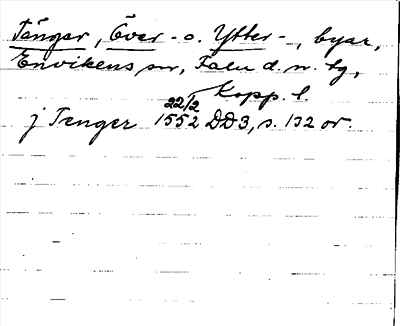 Tängar, Över- o. Ytter-, byar,
Envikens sn, Falu d. n. tg,
Kopp. l.
22/2
j Tenger 1552 DD3, s. 132 or.